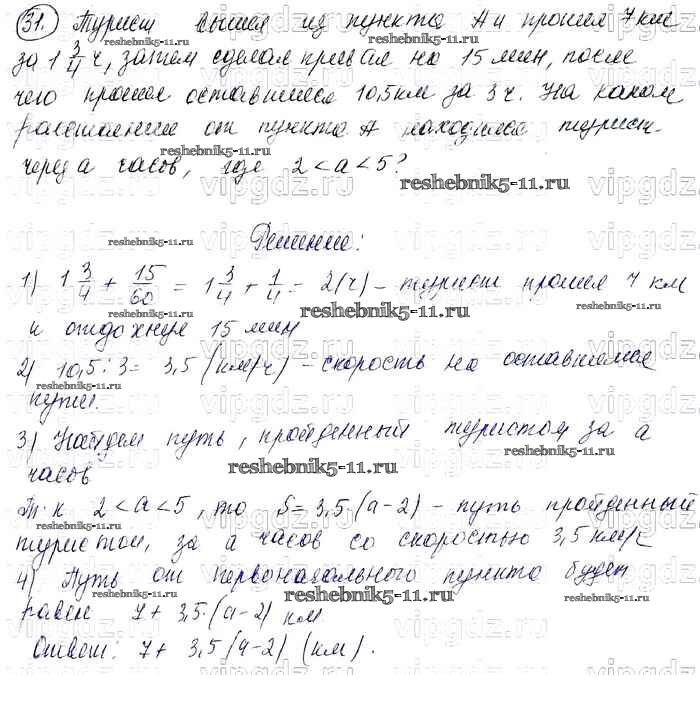 31. Турист вышел из пункта А и прошел 7 км
за 1 3/4 ч, затем сделал привал на 15 мин, после
чего прошел оставшиеся 10,5 км за 3 ч. На каком
расстоянии от пункта А находился турист
reshebnik5-11.ru
через а часов, где 2 < a < 5?
reshebnik5-11.ru
Решение:
reshebnik5-11.ru
1) 1 3/4 + 15/60 = 1 3/4 + 1/4 = 2(ч) – турист прошел 7 км
reshebnik5-11.ru
и отдохнул 15 мин
2) 10,5 : 3 = 3,5 (км/ч) – скорость на оставшемся
reshebnik5-11.ru
пути.
3) Найдем путь, пройденный туристом за а
часов
reshebnik5-11.ru
Т.к 2 < a < 5, то S = 3,5·(a-2) – путь пройденный
туристом, за а часов со скоростью 3,5 км/ч
4) Путь от первоначального пункта будет
reshebnik5-11.ru
reshebnik5-11.ru
равен 7 + 3,5·(a-2) км
Ответ: 7 + 3,5(a-2) (км).
vipgdz.ru